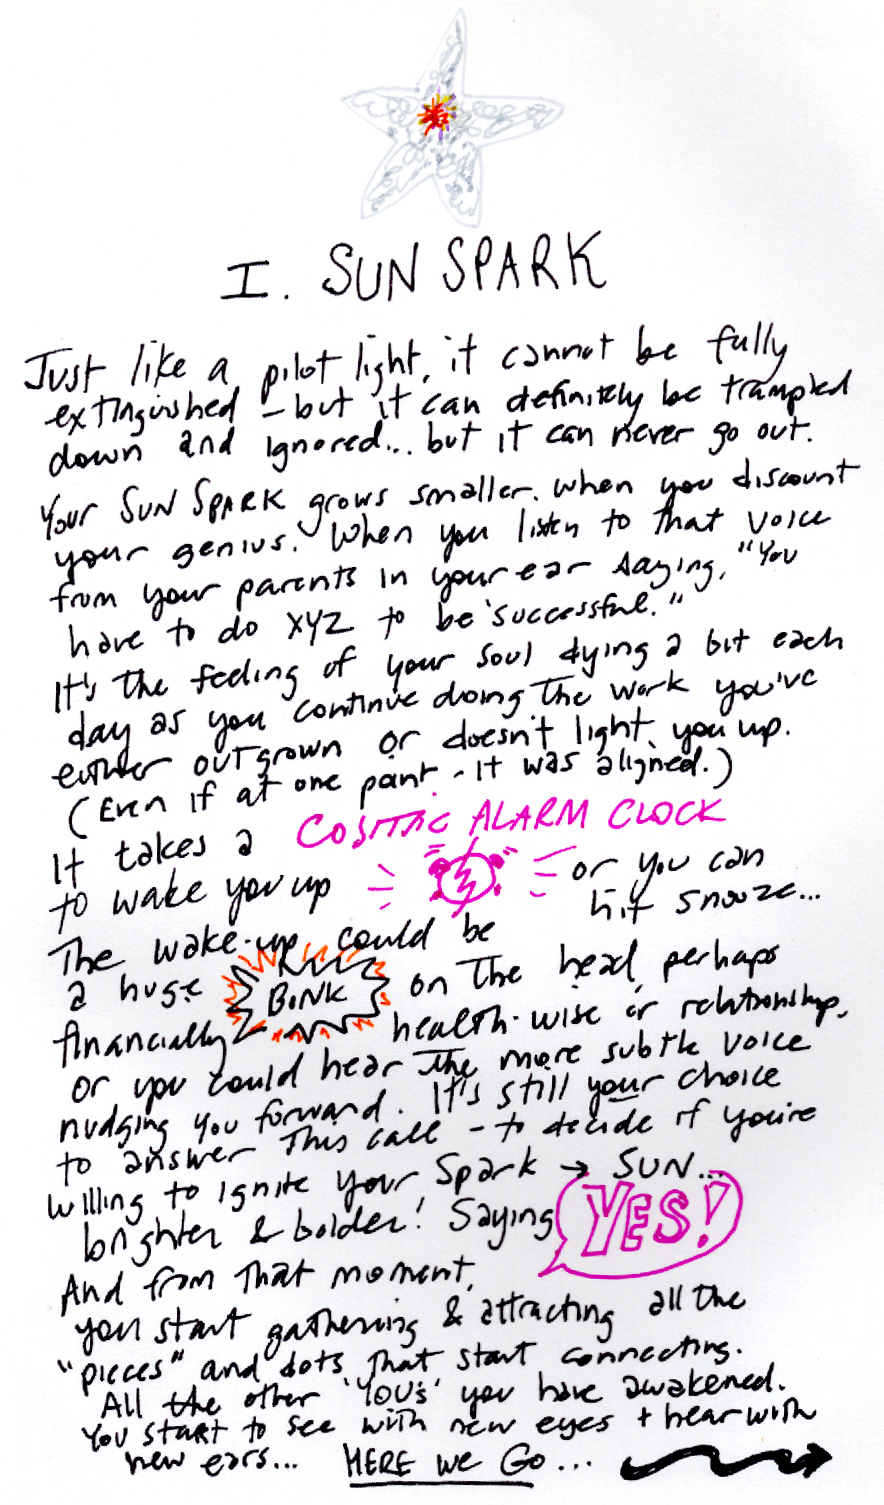 I. SUN SPARK
Just like a pilot light, it cannot be fully
extinguished – but it can definitely be trampled
down and ignored... but it can never go out.
Your SUN SPARK grows smaller. when you discount
your genius. When you listen to that voice
from your parents in your ear saying, "You
have to do XYZ to be 'successful."
It's the feeling of your soul dying a bit each
day as you continue doing the work you've
either outgrown or doesn't light you up.
(Even if at one point - it was aligned.)
It takes a COSMIC ALARM CLOCK
to wake you up or you can
hit snooze...
The wake-up could be
a huge BONK on the head, perhaps
financially health-wise or relationship,
or you could hear the more subtle voice
nudging you forward. It's still your choice
to answer this call – to decide if you're
willing to ignite your Spark → SUN...
brighter & bolder! Saying YES!
And from that moment,
you start gathering & attracting all the
"pieces" and dots that start connecting.
All the other 'YOU's' you have awakened.
You start to see with new eyes + hear with
new ears... HERE WE GO...